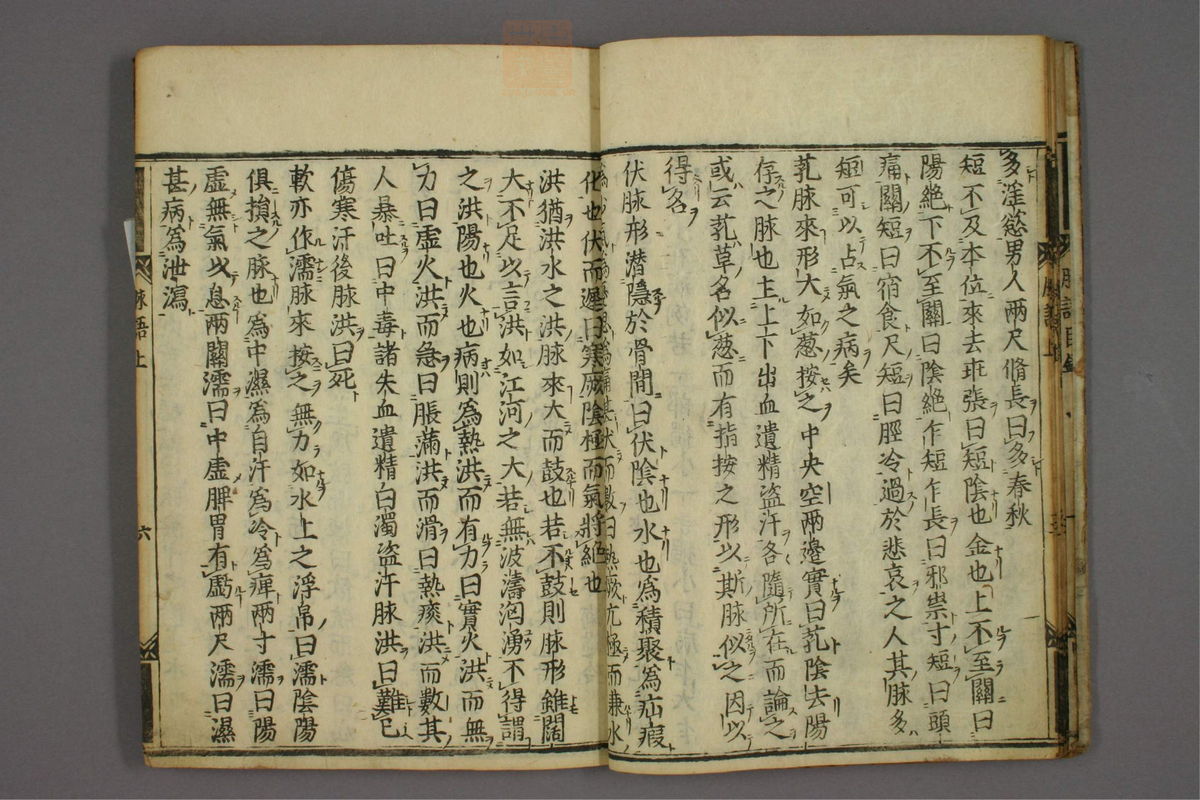 多淫慾男人兩尺脩長曰多春秋
短不及本位來去乖張曰短陰也金也上不至關曰
陽絶下不至關曰陰絶乍短乍長曰邪祟寸短曰頭
痛關短曰宿食尺短曰脛冷過於悲哀之人其脉多
短可以占氣之病矣
芤脉來形大如葱按之中央空兩邊實曰芤陰去陽
存之脉也主上下出血遺精盜汗各隨所在而論之
或云芤草名似葱而有指按之形以斯脉似之因以
得名
伏脉形潜隱於骨間曰伏陰也水也爲積聚爲疝瘕
伏而數曰熱厥亢極而兼水
化也伏而遲曰寒厥陰極而氣將絕也
洪猶洪水之洪脉來大而鼓也若不鼓則脉形雖闊
大不足以言洪如江河之大若無波濤洶湧不得謂
之洪陽也火也病則爲熱洪而有力曰實火洪而無
力曰虛火洪而急曰脹滿洪而滑曰熱痰洪而數其
人暴吐曰中毒諸失血遺精白濁盜汗脉洪曰難已
傷寒汗後脉洪曰死
軟亦作濡脉來按之無力如水上之浮帛曰濡陰陽
俱損之脉也爲中濕爲自汗爲冷爲痺兩寸濡曰陽
虛無氣以息兩關濡曰中虛脾胃有虧兩尺濡曰濕
甚病爲泄瀉
脉語上
六